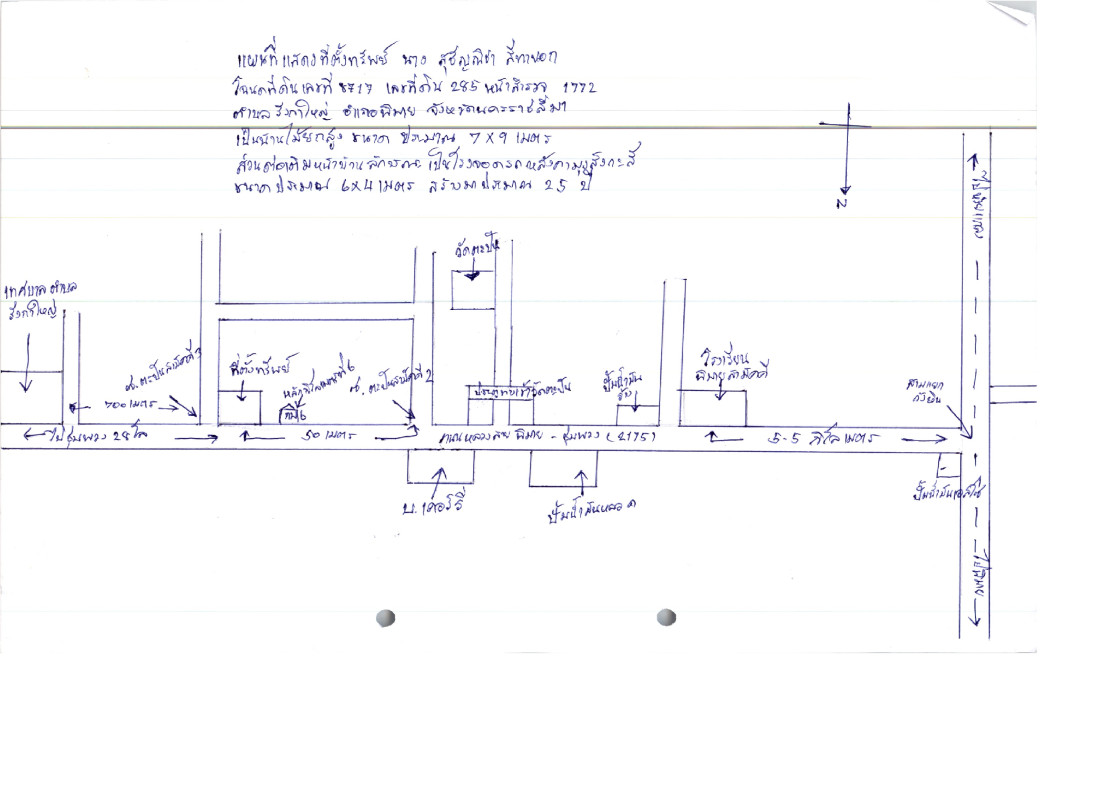 แผนที่แสดงที่ตั้งทรัพย์ นาง
โฉนดที่ดินเลขที่ 8717 เลขที่ดิน 285 หน้าสำรวจ 1772
ตำบลรังกาใหญ่ อำเภอพิมาย จังหวัดนครราชสีมา
เป็นบ้านไม้ยกสูง ขนาด ประมาณ 7 X 9 เมตร
ส่วนต่อเติมหน้าบ้านลักษณะ เป็นโรงจอดรถหลังคามุงสังกะสี
ขนาดประมาณ 6 x 4 เมตร สร้างมาประมาณ 25 ปี
N
วัดตะปัน
เทศบาลตำบล
รังกาใหญ่
ซ.ตะปันสามัคคี 3
ที่ตั้งทรัพย์
หลักกิโลเมตรที่ 6
กม 6
ซ.ตะปันสามัคคี 2
ประตูทางเข้าวัดตะปัน
ปั๊มน้ำมัน
โรงเรียน
พิมายสามัคคี
สามแยก
700 เมตร
ไปชุมพวง 28 โล
50 เมตร
ถนนหลวงสาย พิมาย - ชุมพวง (2175)
5-5 กิโลเมตร
บ.เคอรี่
ปั๊มน้ำมันหลอด